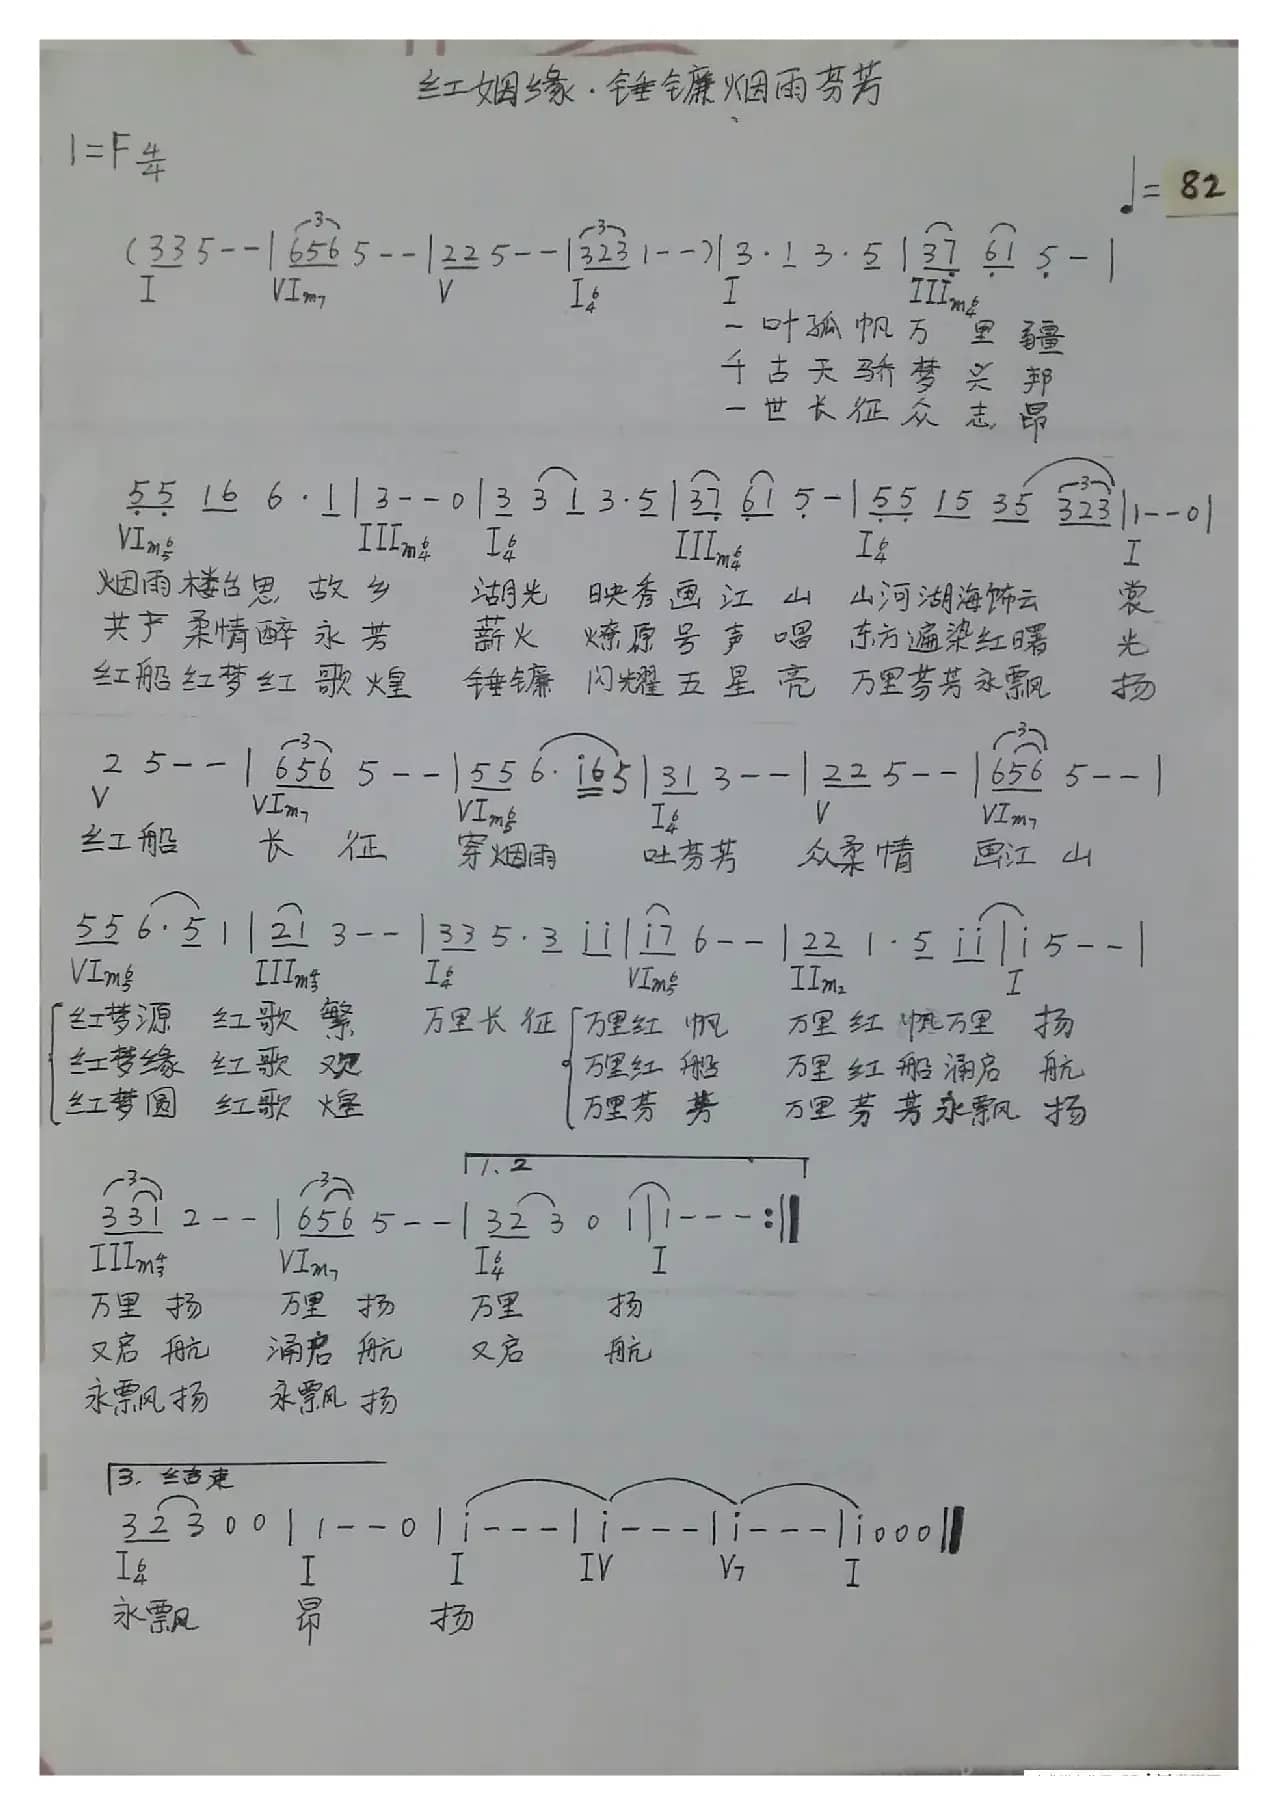 红姻缘·锤镰烟雨芬芳
1=F 4/4
♩= 82
(3 3 5 - - | 6 5 6 5 - - | 2 2 5 - - | 3 2 3 1 - - ) | 3 · 1 3 · 5 | 3 7 6 1 5 - |
I VIm7 V I64 I IIIm64
一叶孤帆万里疆
千古天骄梦兴邦
一世长征众志昂
5 5 1 6 6 · 1 | 3 - - 0 | 3 3 1 3 · 5 | 3 7 6 1 5 - | 5 5 1 5 3 5 3 2 3 | 1 - - 0 |
VIm65 IIIm64 I64 IIIm64 I64 I
烟雨楼台思故乡 湖光映秀画江山 山河湖海饰云裳
共产柔情醉永芳 薪火燎原号声唱 东方遍染红曙光
红船红梦红歌煌 锤镰闪耀五星亮 万里芬芳永飘扬
2 5 - - | 6 5 6 5 - - | 5 5 6 · i 6 5 | 3 1 3 - - | 2 2 5 - - | 6 5 6 5 - - |
V VIm7 VIm65 I64 V VIm7
红船 长征 穿烟雨 吐芬芳 众柔情 画江山
5 5 6 · 5 1 | 2 1 3 - - | 3 3 5 · 3 i i | i 7 6 - - | 2 2 1 · 5 i i | i 5 - - |
VIm65 IIIm43 I64 VIm65 IIm2 I
红梦源 红歌繁 万里长征 万里红帆 万里红帆万里扬
红梦缘 红歌欢 万里红船 万里红船涌启航
红梦圆 红歌煌 万里芬芳 万里芬芳永飘扬
1. 2
3 3 1 2 - - | 6 5 6 5 - - | 3 2 3 0 1 | 1 - - - :||
IIIm43 VIm7 I64 I
万里扬 万里扬 万里 扬
又启航 涌启航 又启 航
永飘扬 永飘扬
3. 结束
3 2 3 0 0 | 1 - - 0 | i - - - | i - - - | i - - - | i 0 0 0 ||
I64 I I IV V7 I
永飘 昂 扬